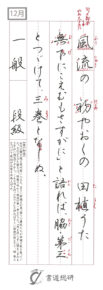 12月
風流の初やおくの田植うた
無下にこえむもさすがにと語れば、脇・第三
とつづけて、三巻となしぬ。
一般 段級
書道総研